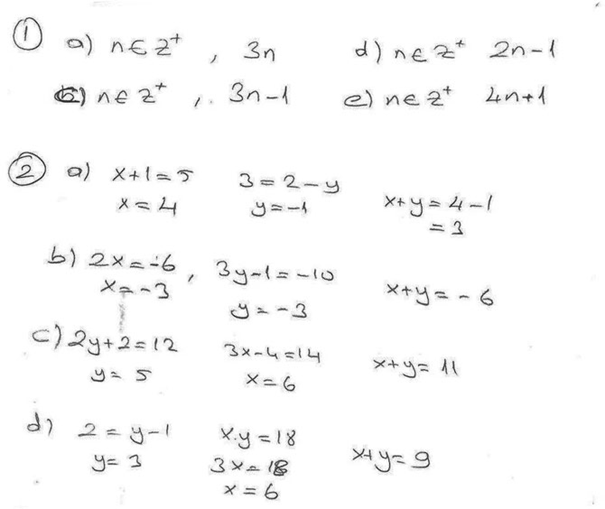 ① a) n∈Z⁺, 3n d) n∈Z⁺ 2n-1
b) n∈Z⁺, 3n-1 e) n∈Z⁺ 4n+1
② a) x+1=5 3=2-y
x=4 y=-1 x+y=4-1
=3
b) 2x=-6, 3y-1=-10
x=-3 y=-3 x+y=-6
c) 2y+2=12 3x-4=14
y=5 x=6 x+y=11
d) 2=y-1 x.y=18
y=3 3x=18 x+y=9
x=6